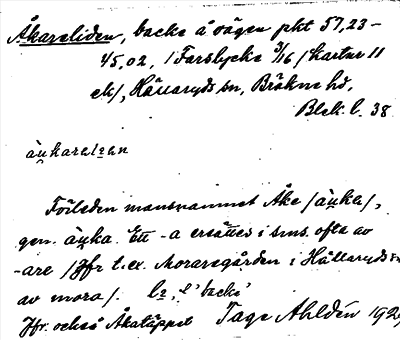 Åkareliden, backe å vägen pkt 57,23 –
45,02, /Farslycke 3/16 /kartur 11
ek/, Hällaryds sn, Bräkne hd,
Blek. l. 38
Förleden mansnamnet Åke /
gen. Ett -a ersättes i sms. ofta av
-are /Jfr t.ex. Moraregården i Hällaryds sn
av mora/. 'backe'
Jfr. också Åkatäppet Tage Ahldén 192